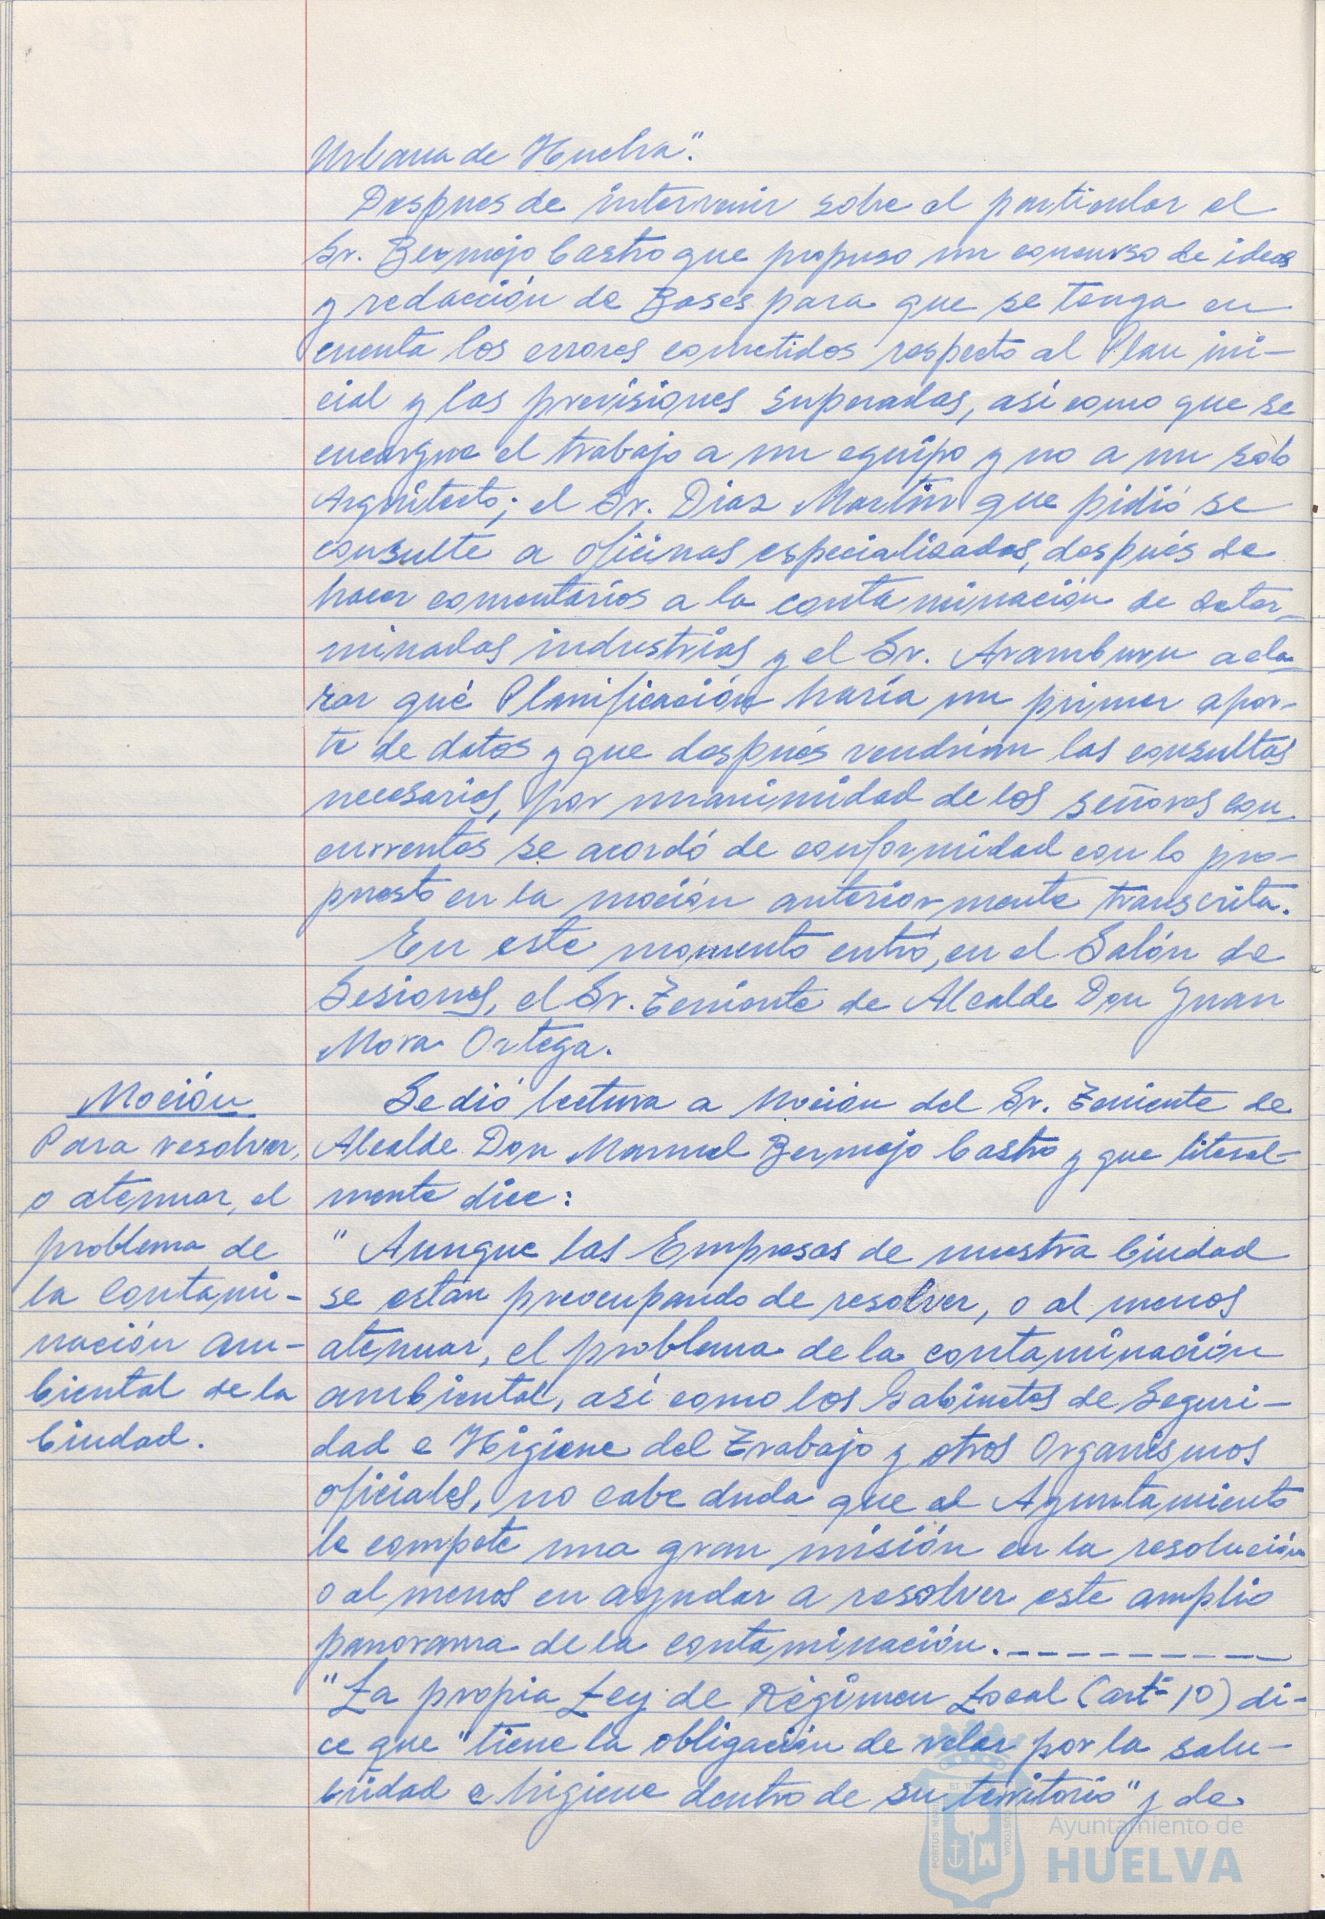 Urbana de Huelva".
Despues de intervenir sobre el particular el
Sr. Bermejo Castro que propuso un concurso de ideas
y redacción de Bases para que se tenga en
cuenta los errores cometidos respecto al Plan ini-
cial y las previsiones superadas, así como que se
encargue el trabajo a un equipo y no a un sólo
Arquitecto; el Sr. Diaz Martin que pidió se
consulte a oficinas especializadas, después de
hacer comentarios a la contaminación de deter-
minadas industrias y el Sr. Aramburu acla-
rar qué Planificación haría un primer apor-
te de datos y que después vendrían las consultas
necesarias, por unanimidad de los señores con-
currentes se acordó de conformidad con lo pro-
puesto en la moción anteriormente transcrita.
En este momento entró, en el Salón de
Sesiones, el Sr. Teniente de Alcalde Don Juan
Mora Ortega.
Moción
Para resolver,
o atenuar, el
problema de
la Contami-
nación am-
biental de la
Ciudad.
Se dió lectura a Moción del Sr. Teniente de
Alcalde Don Manuel Bermejo Castro y que literal-
mente dice:
"Aunque las Empresas de nuestra Ciudad
se están preocupando de resolver, o al menos
atenuar, el problema de la contaminación
ambiental, así como los Gabinetes de Seguri-
dad e Higiene del Trabajo y otros Organismos
oficiales, no cabe duda que al Ayuntamiento
le compete una gran misión en la resolución
o al menos en ayudar a resolver este amplio
panorama de la contaminación.- - - - - - - - -
"La propia Ley de Régimen Local (artº 10) di-
ce que "tiene la obligación de velar por la salu-
bridad e higiene dentro de su territorio" y de
Ayuntamiento de
HUELVA